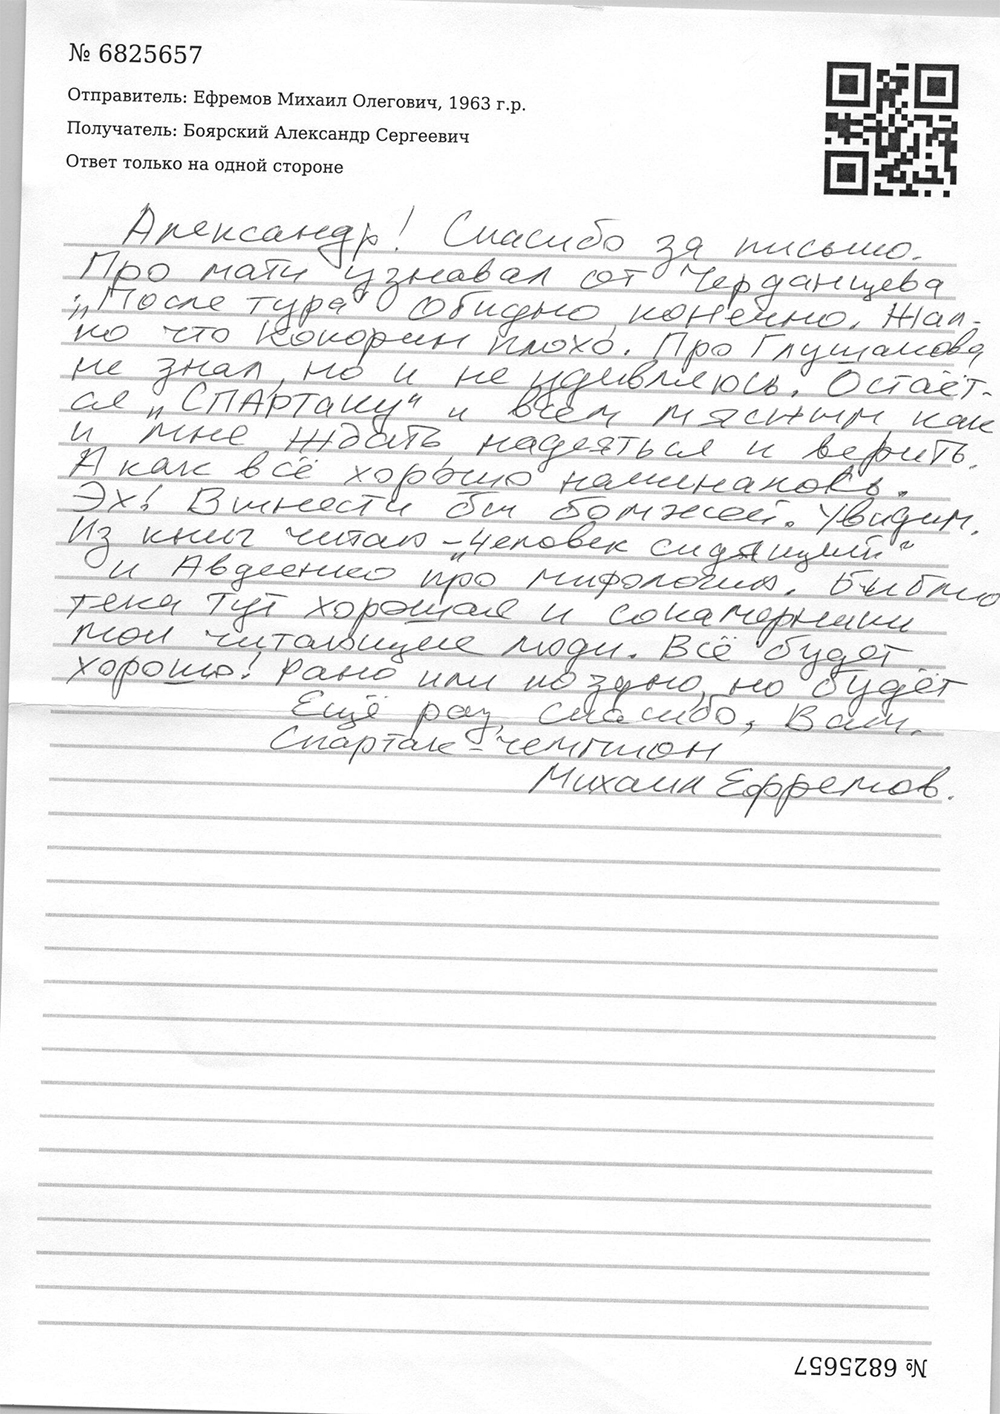 № 6825657
Отправитель: Ефремов Михаил Олегович, 1963 г.р.
Получатель: Боярский Александр Сергеевич
Ответ только на одной стороне
Александр! Спасибо за письмо.
Про матч узнавал от Черданцева
"После тура" Обидно, конечно. Жал-
ко что Кокорин плохо. Про Глушакова
не знал, но и не удивляюсь. Остаёт-
ся "СПАРтаку" и всем мясным, как
и мне ждать, надеяться и верить.
А как всё хорошо начиналось.
Эх! Вынести бы бомжей. Увидим.
Из книг читаю - "Человек сидящий"
и Авдеенко про мифологию. Библио
тека тут хорошая и сокамерники
мои читающие люди. Всё будет
хорошо! Рано или поздно, но будет
Ещё раз, спасибо, Вам.
Спартак - чемпион
Михаил Ефремов.
№ 6825657